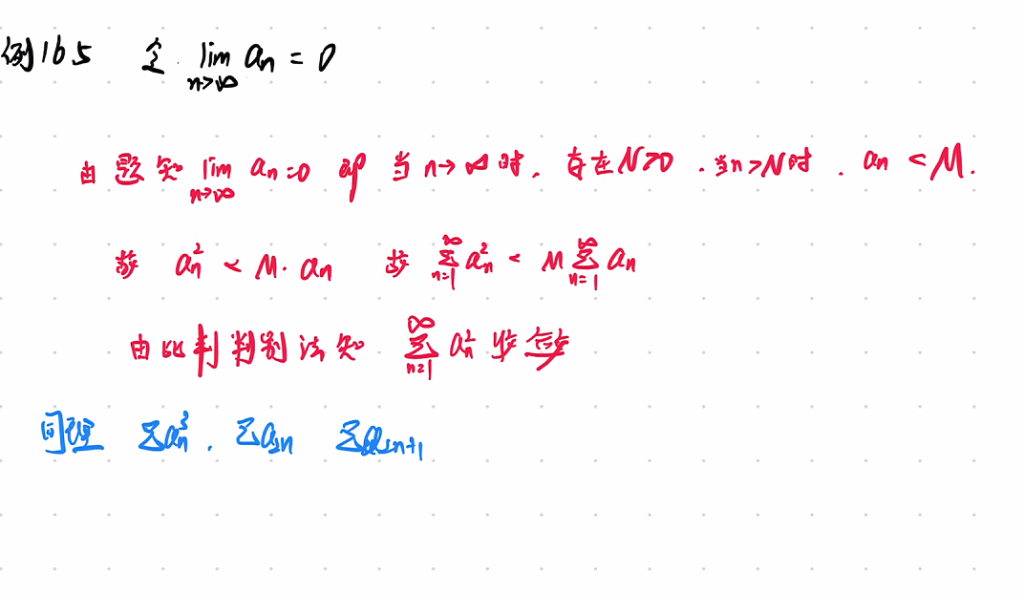 例165 令 lim_{n→∞} aₙ = 0
由题知 lim_{n→∞} aₙ=0 即 当 n→∞时, 存在N>0 . 当n>N时 . aₙ < M.
故 aₙ² < M· aₙ 故 ∑_{n=1}^{∞} aₙ² < M ∑_{n=1}^{∞} aₙ
由比判判别法知 ∑_{n=1}^{∞} aₙ² 收敛
同理 ∑aₙ³ . ∑a₂ₙ ∑a₂ₙ₊₁